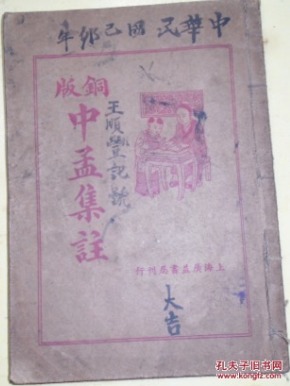 中華民國己卯年
銅版
中孟集註
王順豐記號
上海廣益書局刊行
大吉
孔夫子旧书网